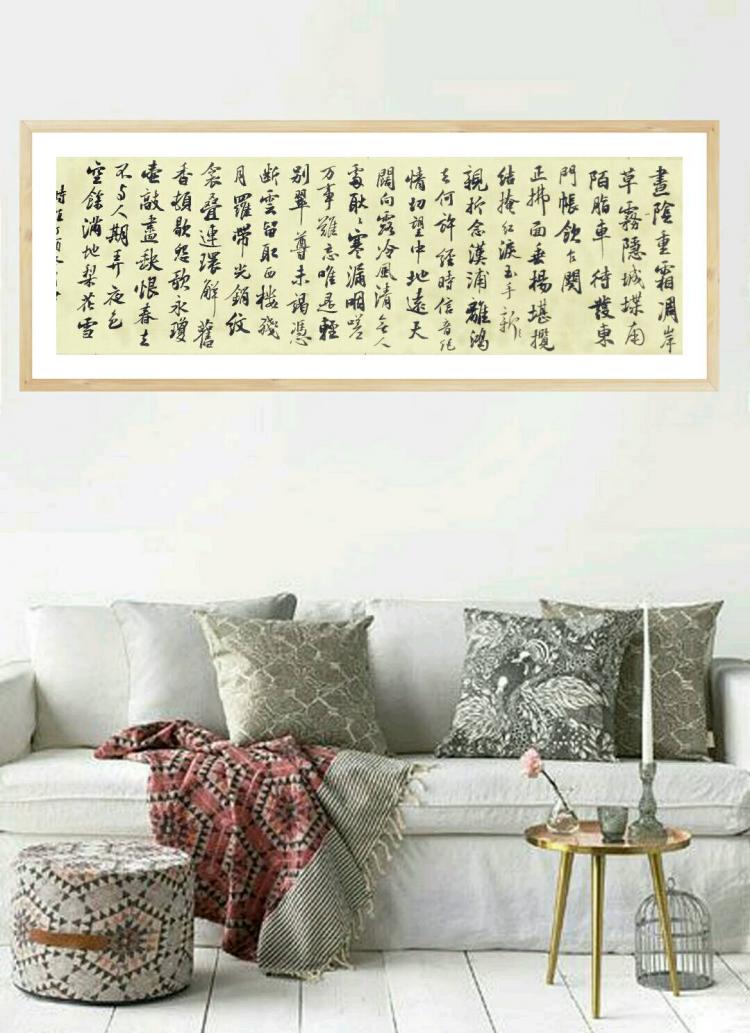 晝陰重霜凋岸
草霧隱城堞南
陌脂車待發東
門帳飲乍闋
正拂面垂楊堪攬
結掩紅淚玉手新
親折念漢浦離鴻
去何許經時信音絕
情切望中地遠天
闊向露冷風清無人
處耿〻寒漏咽嗟
万事難忘唯是輕
別翠尊未竭憑
斷雲留取西樓殘
月羅帶光銷紋
衾疊連環解舊
香頓歇怨歌永瓊
壺敲盡缺恨春去
不与人期弄夜色
空餘滿地梨花雪
時在丁酉